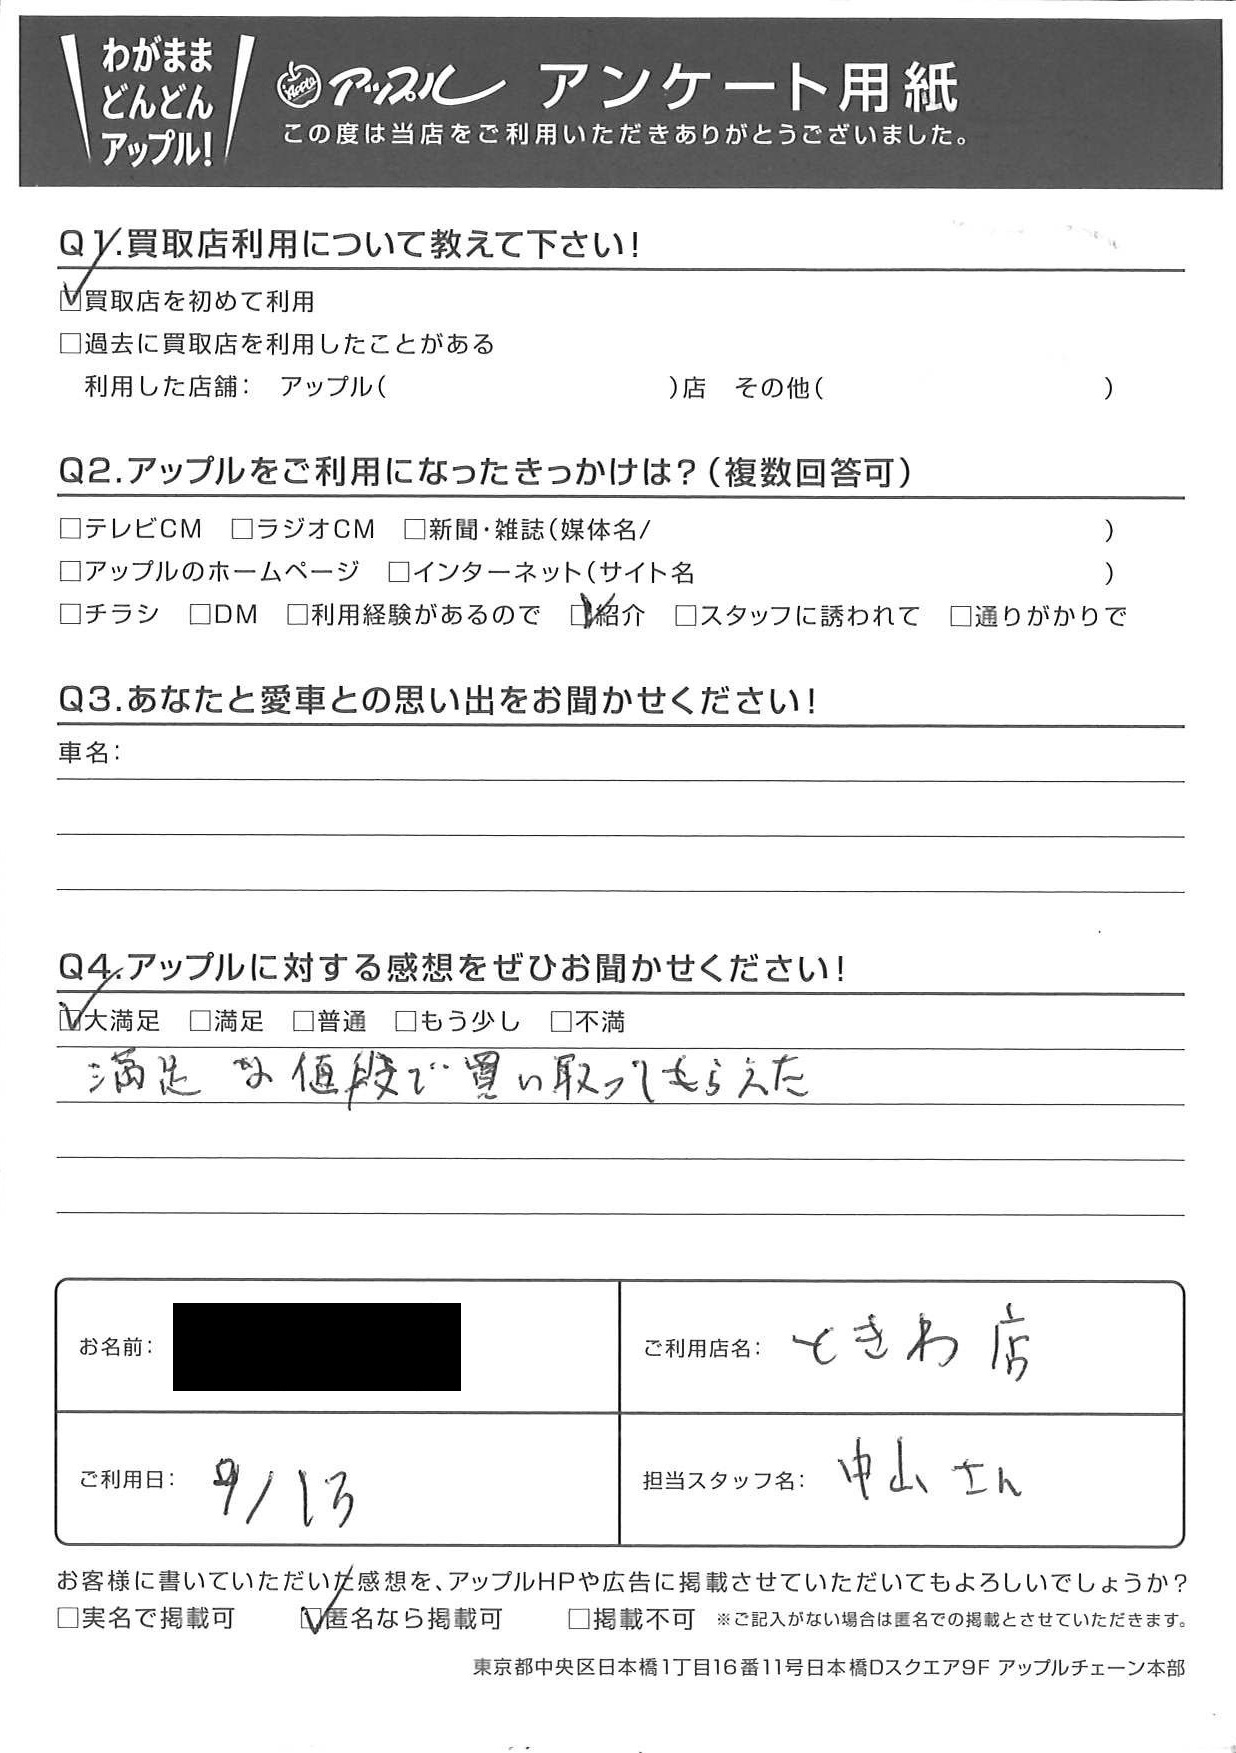 わがまま
どんどん
アップル!
Apple アップル アンケート用紙
この度は当店をご利用いただきありがとうございました。
Q1.買取店利用について教えて下さい!
☑買取店を初めて利用
□過去に買取店を利用したことがある
利用した店舗: アップル( )店 その他( )
Q2.アップルをご利用になったきっかけは?(複数回答可)
□テレビCM □ラジオCM □新聞・雑誌(媒体名/ )
□アップルのホームページ □インターネット(サイト名 )
□チラシ □DM □利用経験があるので ☑紹介 □スタッフに誘われて □通りがかりで
Q3.あなたと愛車との思い出をお聞かせください!
車名:
Q4.アップルに対する感想をぜひお聞かせください!
☑大満足 □満足 □普通 □もう少し □不満
満足な値段で買い取ってもらえた
お名前:
ご利用店名: ときわ店
ご利用日: 9/13
担当スタッフ名: 中山さん
お客様に書いていただいた感想を、アップルHPや広告に掲載させていただいてもよろしいでしょうか?
□実名で掲載可 ☑匿名なら掲載可 □掲載不可 ※ご記入がない場合は匿名での掲載とさせていただきます。
東京都中央区日本橋1丁目16番11号日本橋Dスクエア9F アップルチェーン本部